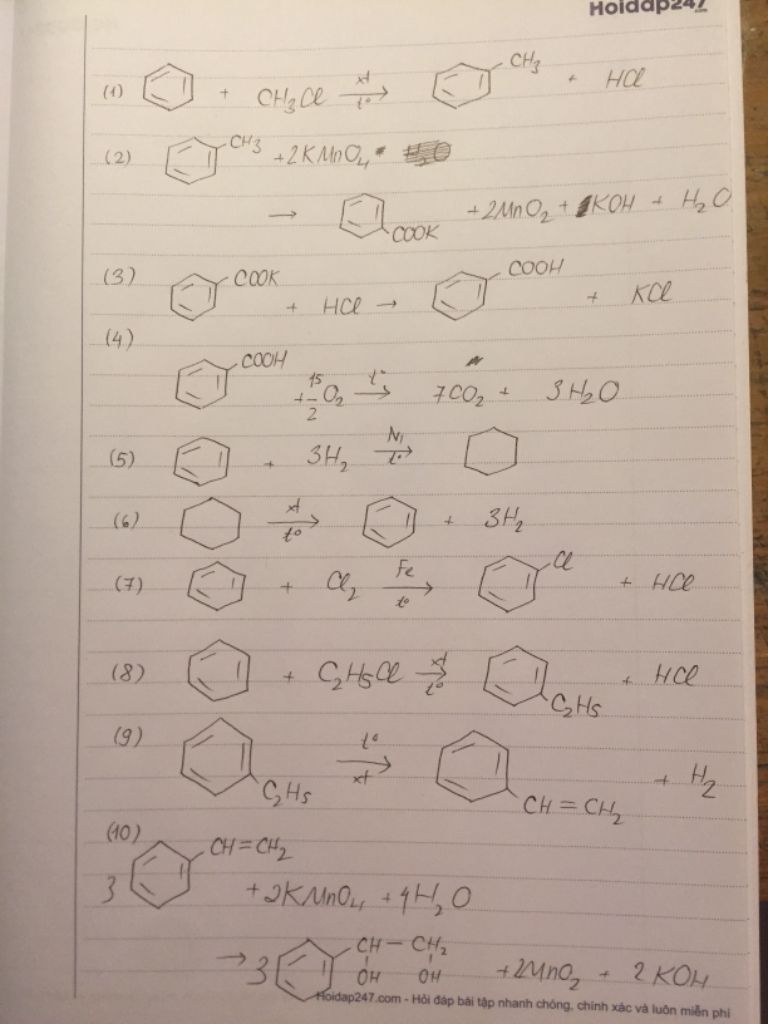 Hoidap247
.com
(1) + CH3Cl xt t° → CH3 + HCl
(2) CH3 + 2KMnO4
→ COOK + 2MnO2 + KOH + H2O
(3) COOK + HCl → COOH + KCl
(4)
COOH + 15/2 O2 t° → 7CO2 + 3H2O
(5) + 3H2 Ni t° →
(6) xt t° → + 3H2
(7) + Cl2 Fe t° → Cl + HCl
(8) + C2H5Cl xt t° → C2H5 + HCl
(9) C2H5 t° xt → CH=CH2 + H2
(10)
3 CH=CH2 + 2KMnO4 + 4H2O
→ 3 CH - CH2 OH OH + 2MnO2 + 2KOH
Hoidap247.com - Hỏi đáp bài tập nhanh chóng, chính xác và luôn miễn phí